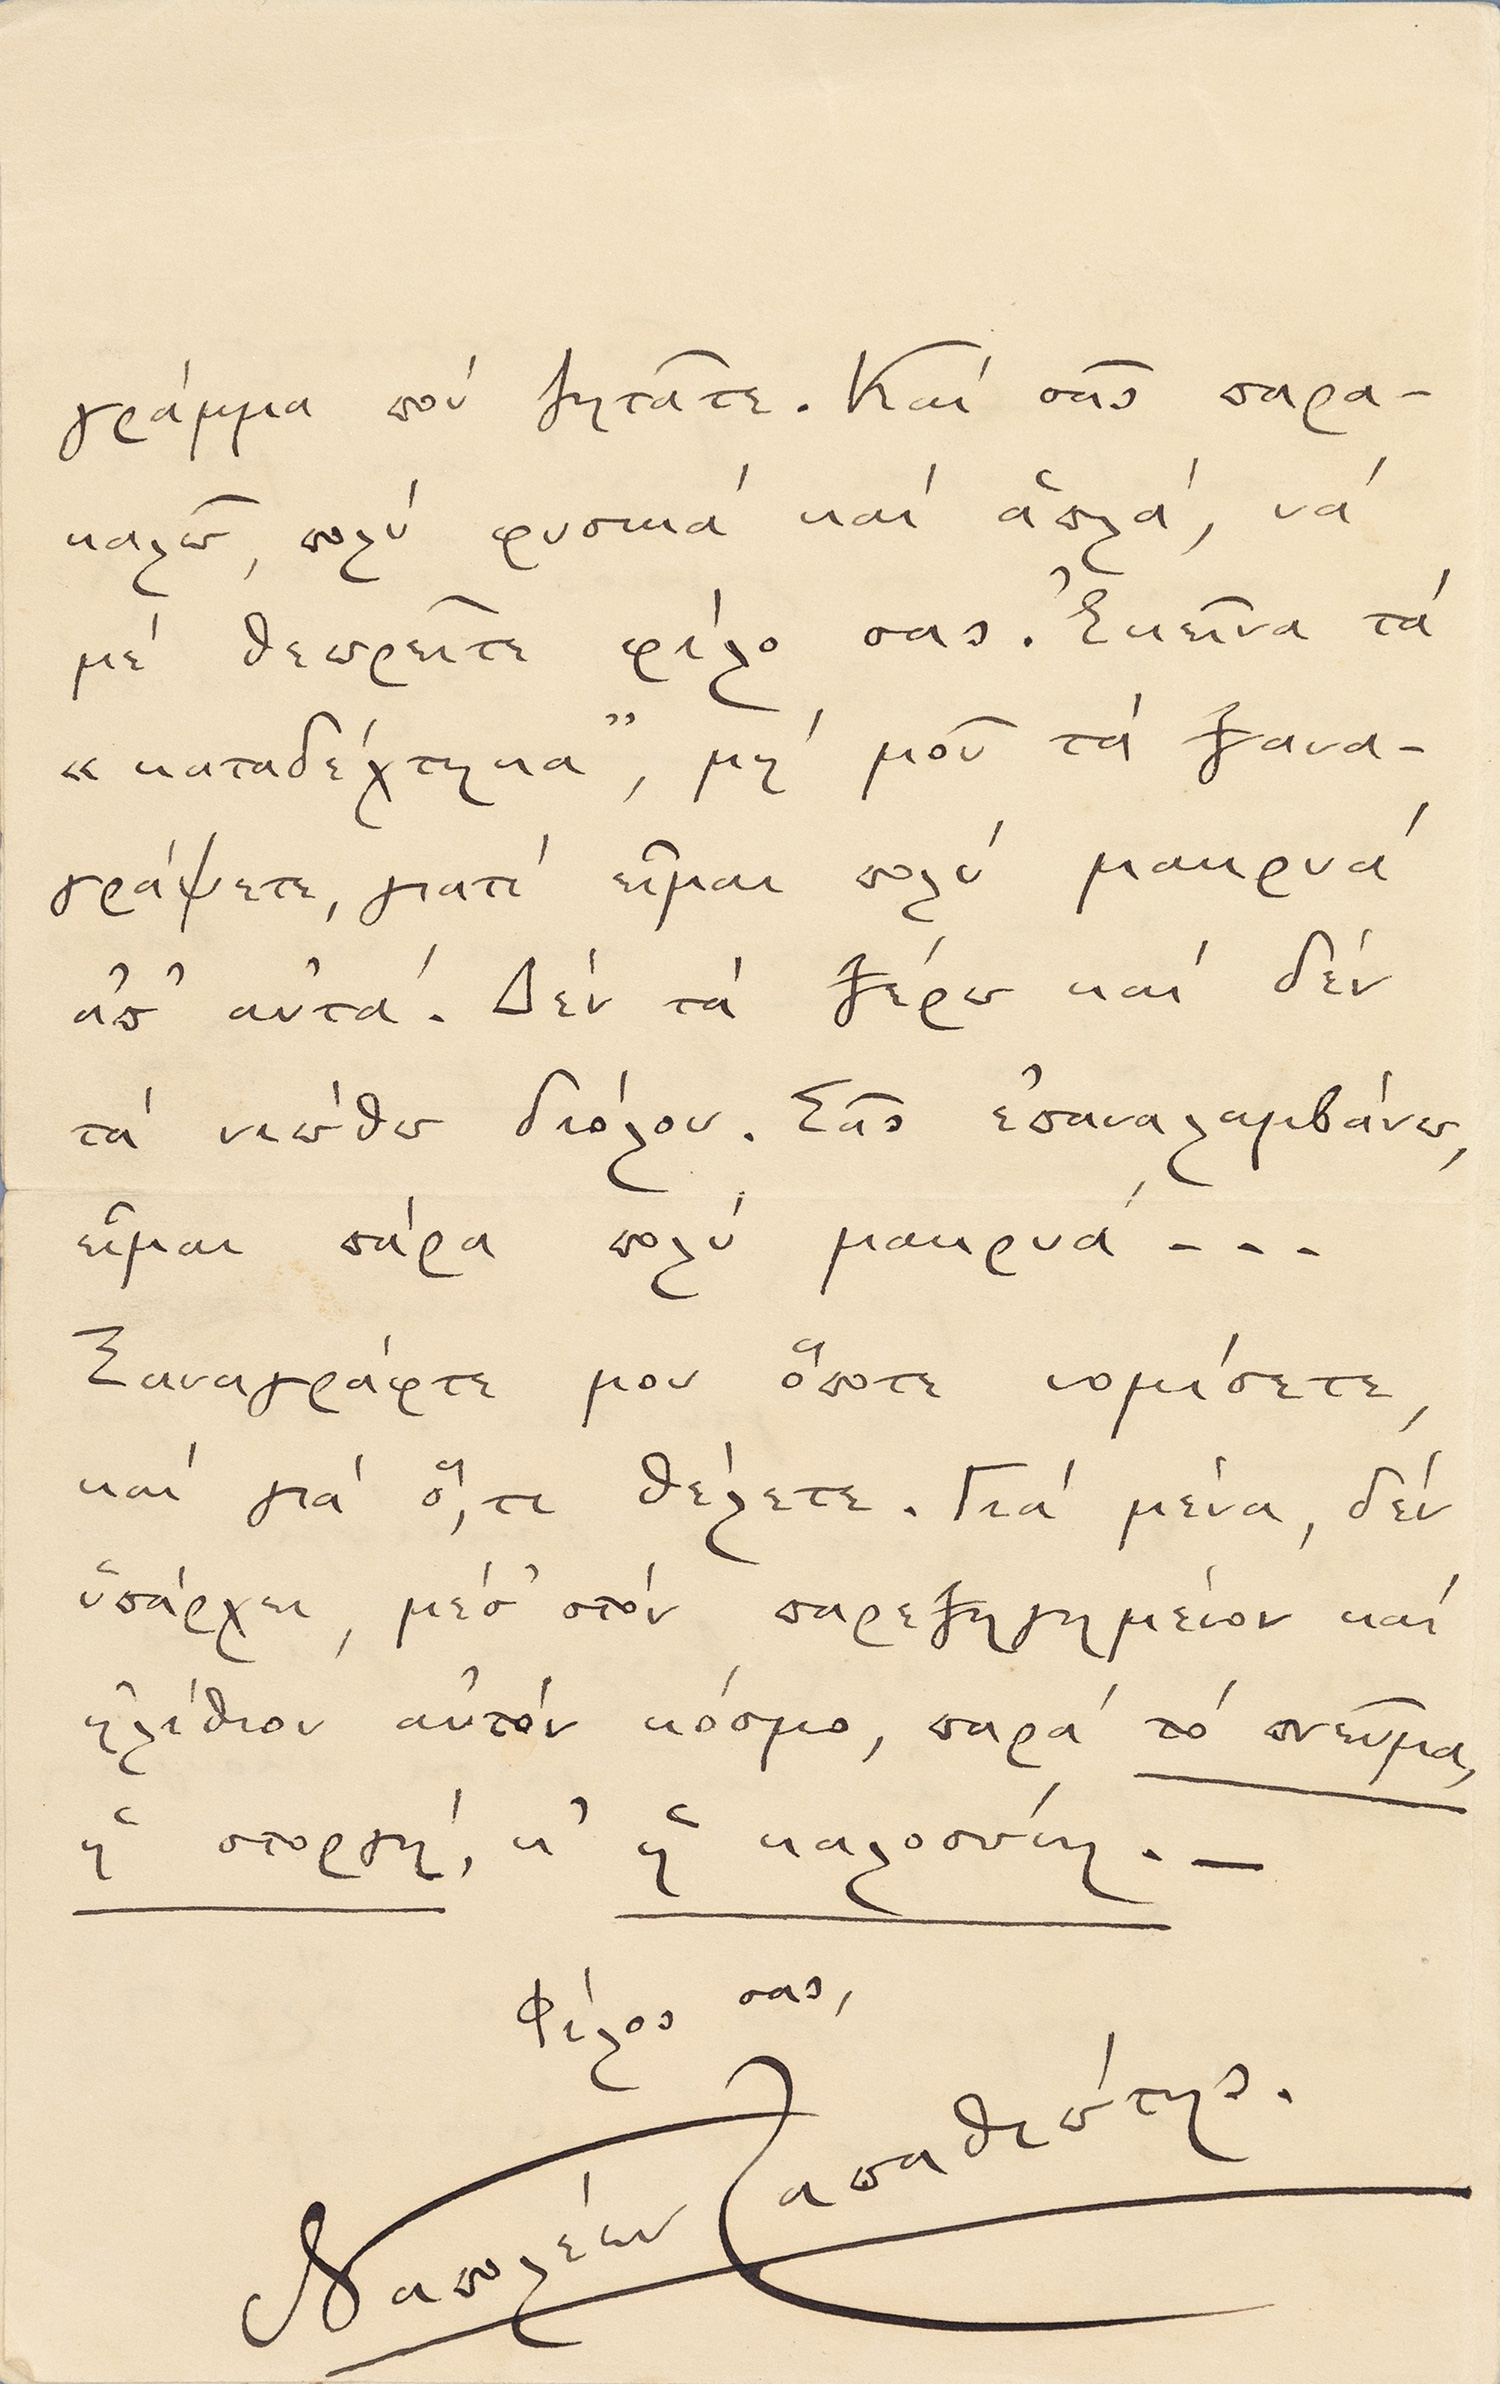 γράμμα πού ζητᾶτε. Καί σᾶς παρα-
καλῶ, πολύ φυσικά καί ἁπλά, νά
μέ θεωρεῖτε φίλο σας. Ἐκεῖνα τά
«καταδέχτηκα”, μή μοῦ τά ξανα-
γράψετε, γιατί εἶμαι πολύ μακρυά
ἀπ’ αὐτά. Δέν τά ξέρω καί δέν
τά νιώθω διόλου. Σᾶς ἐπαναλαμβάνω,
εἶμαι πάρα πολύ μακρυά - - -
Ξαναγράφτε μου ὅποτε νομίσετε,
καί γιά ὅ,τι θέλετε. Γιά μένα, δέν
ὑπάρχει, μέσ’ στόν παρεξηγημένον καί
ἠλίθιον αὐτόν κόσμο, παρά τό πνεῦμα,
ἡ στοργή, κ’ ἡ καλοσύνη. —
Φίλος σας,
Ναπολέων Λαπαθιώτης.